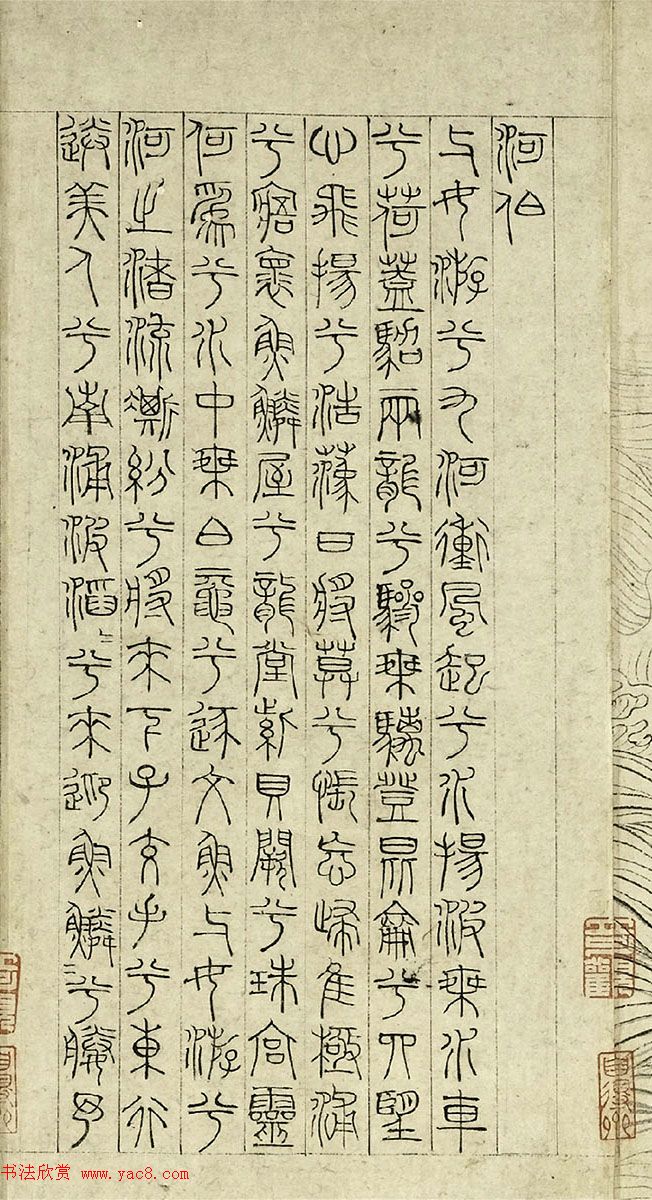 河伯
与女游兮九河衝風起兮水揚波乘水車
兮荷蓋駕兩龍兮驂乘登昆侖兮四望
心飛揚兮浩蕩日將莫兮悵忘歸隹極浦
兮寤懷魚鱗屋兮龍堂紫貝闕兮珠宮靈
何爲兮水中乘白黿兮逐文魚与女游兮
河之渚流澌紛兮將來下子交手兮東行
送美人兮南浦波滔〻兮來迎魚鱗〻兮媵予
书法欣赏 www.yac8.com